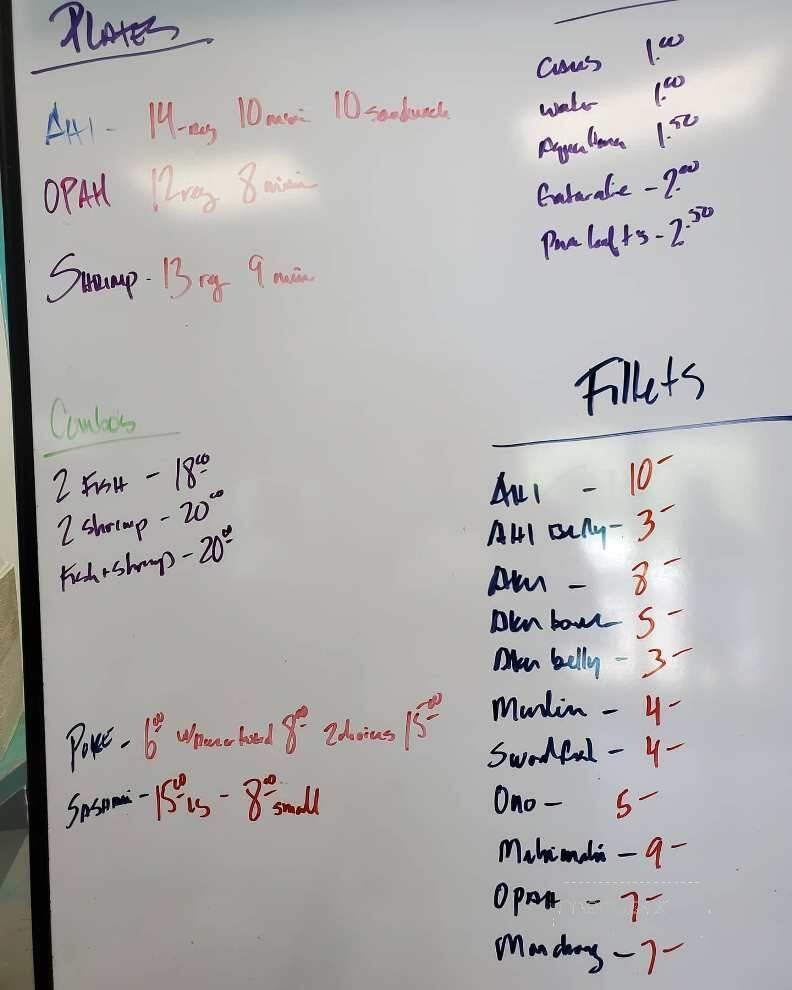 PLATES
AHI - 14-reg 10 mini 10 sandwich
OPAH 12 reg 8 mini
SHRIMP - 13 reg 9 mini
Combos
2 FISH - 18.00
2 Shrimp - 20.00
Fish + shrimp - 20.00
POKE - 6.00 8.00 2 choices 15.00
SASHIMI - 15.00 lg - 8.00 small
CANS 1.00
Water 1.00
1.50
Gatorade - 2.00
Pure leaf t's - 2.50
Fillets
AHI - 10-
AHI Belly - 3-
Aku - 8-
Aku bone 5-
Aku belly - 3-
Marlin - 4-
Swordfish - 4-
Ono - 5-
Mahimahi - 9-
OPAH - 7-
Monchong - 7-